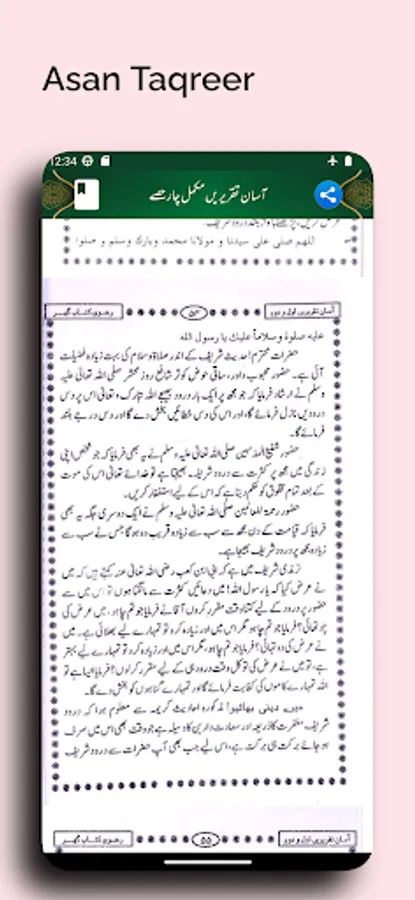 Asan Taqreer
12:34
آسان تقریریں مکمل چار حصے
اللهم صلى على سيدنا و مولانا محمد وبارك وسلم و صلوا
آسان تقریریں اول و دوم ۵۴ رضوی کتاب گھر
عليه صلوة وسلاماً عليك يا رسول الله
حضرات محترم! احادیث شریفہ کے اندر صلاۃ وسلام کی بہت زیادہ فضیلت
آئی ہے۔ حضور محبوب داور، ساقی حوض کوثر شافع روز محشر صلی اللہ تعالیٰ علیہ
وسلم نے ارشاد فرمایا کہ جو مجھ پر ایک بار درود بھیجے اللہ تبارک وتعالیٰ اس پر دس
درودیں نازل فرمائے گا، اور اس کی دس خطائیں بخش دے گا اور دس درجے بلند
فرمائے گا۔
حضور شفیع المذنبین صلی اللہ تعالیٰ علیہ وسلم نے یہ بھی فرمایا کہ جو شخص اپنی
زندگی میں مجھ پر کثرت سے درود شریف بھیجتا ہے تو خدائے تعالیٰ اس کی موت
کے بعد تمام مخلوق کو حکم دیتا ہے کہ اس کے لیے استغفار کریں۔
حضور رحمۃ للعالمین صلی اللہ تعالیٰ علیہ وسلم نے ایک دوسری جگہ یہ بھی
فرمایا کہ قیامت کے دن مجھ سے سب سے زیادہ قریب وہ ہوگا جس نے سب سے
زیادہ مجھ پر درود شریف بھیجا ہے۔
ترمذی شریف میں ہے کہ ابی ابن کعب رضی اللہ تعالیٰ عنہ کہتے ہیں کہ میں
نے عرض کیا کہ یا رسول اللہ! میں دعائیں کثرت سے مانگتا ہوں تو اس میں سے
حضور پر درود کے لیے کتنا وقت مقرر کروں آقا نے فرمایا جو تم چاہو، میں عرض کی
چوتھائی؟ فرمایا جو تم چاہو مگر اس میں اور زیادہ کرو تو تمہارے لیے بھلائی ہے۔ میں
نے عرض کی دو تہائی؟ فرمایا جو تم چاہو، مگر اس میں اور زیادہ کرو تو تمہارے لیے بہتر
ہے، تو میں نے عرض کی تو کل وقت درود ہی کے لیے مقرر کرلوں؟ فرمایا ایسا ہے تو
اللہ تمہارے کاموں کی کفایت فرمائے گا اور تمہارے گناہوں کو بخش دے گا۔
میرے دینی بھائیو! مذکورہ احادیث کریمہ سے معلوم ہوا کہ درود
شریف مغفرت کا ذریعہ اور سعادت دارین کا وسیلہ ہے جو وقت بھی اس میں صرف
ہو جائے برکت ہی برکت ہے، اس لیے جب بھی آپ حضرات سے درود شریف
آسان تقریریں اول و دوم ۵۵ رضوی کتاب گھر